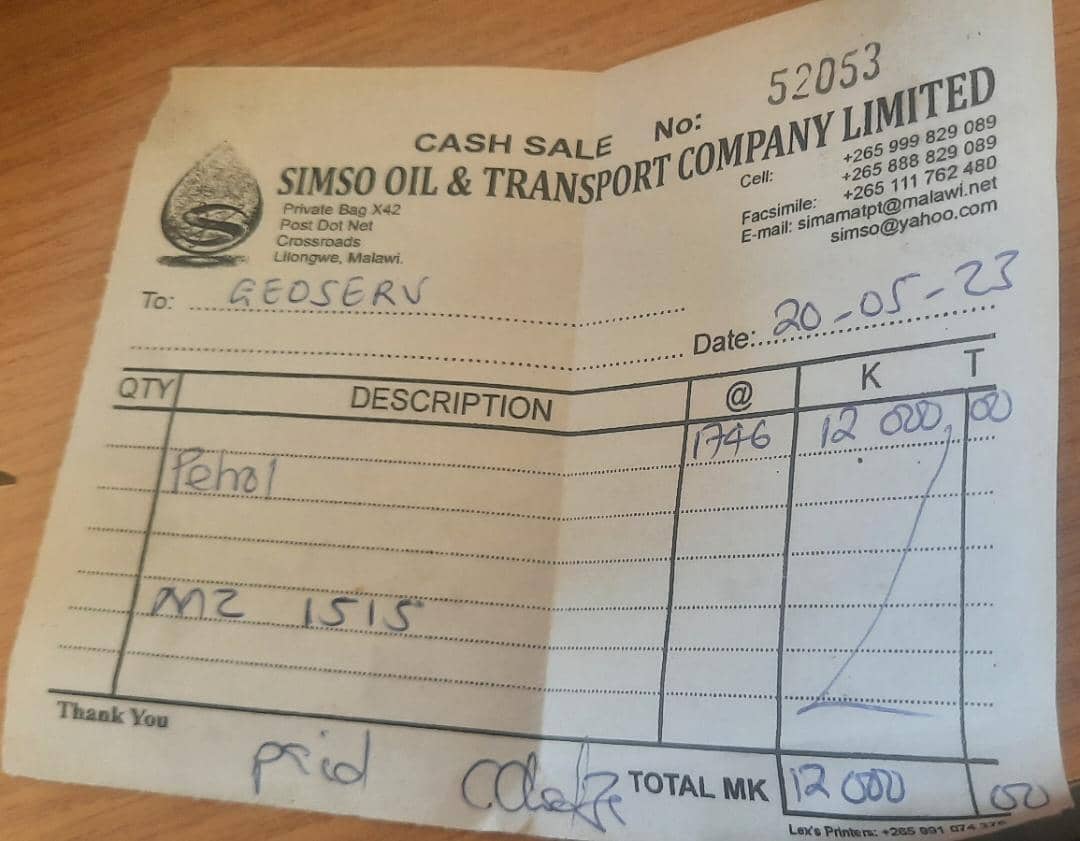 CASH SALE No: 52053
SIMSO OIL & TRANSPORT COMPANY LIMITED
Private Bag X42
Post Dot Net
Crossroads
Lilongwe, Malawi.
Cell: +265 999 829 089
+265 888 829 089
Facsimile: +265 111 762 480
E-mail: simamatpt@malawi.net
simso@yahoo.com
To: GEOSERV
Date: 20-05-23
QTY DESCRIPTION @ K T
1746 12 000, 00
Petrol
MZ 1515
Thank You
paid
TOTAL MK 12 000 00
Lex's Printers: +265 991 074